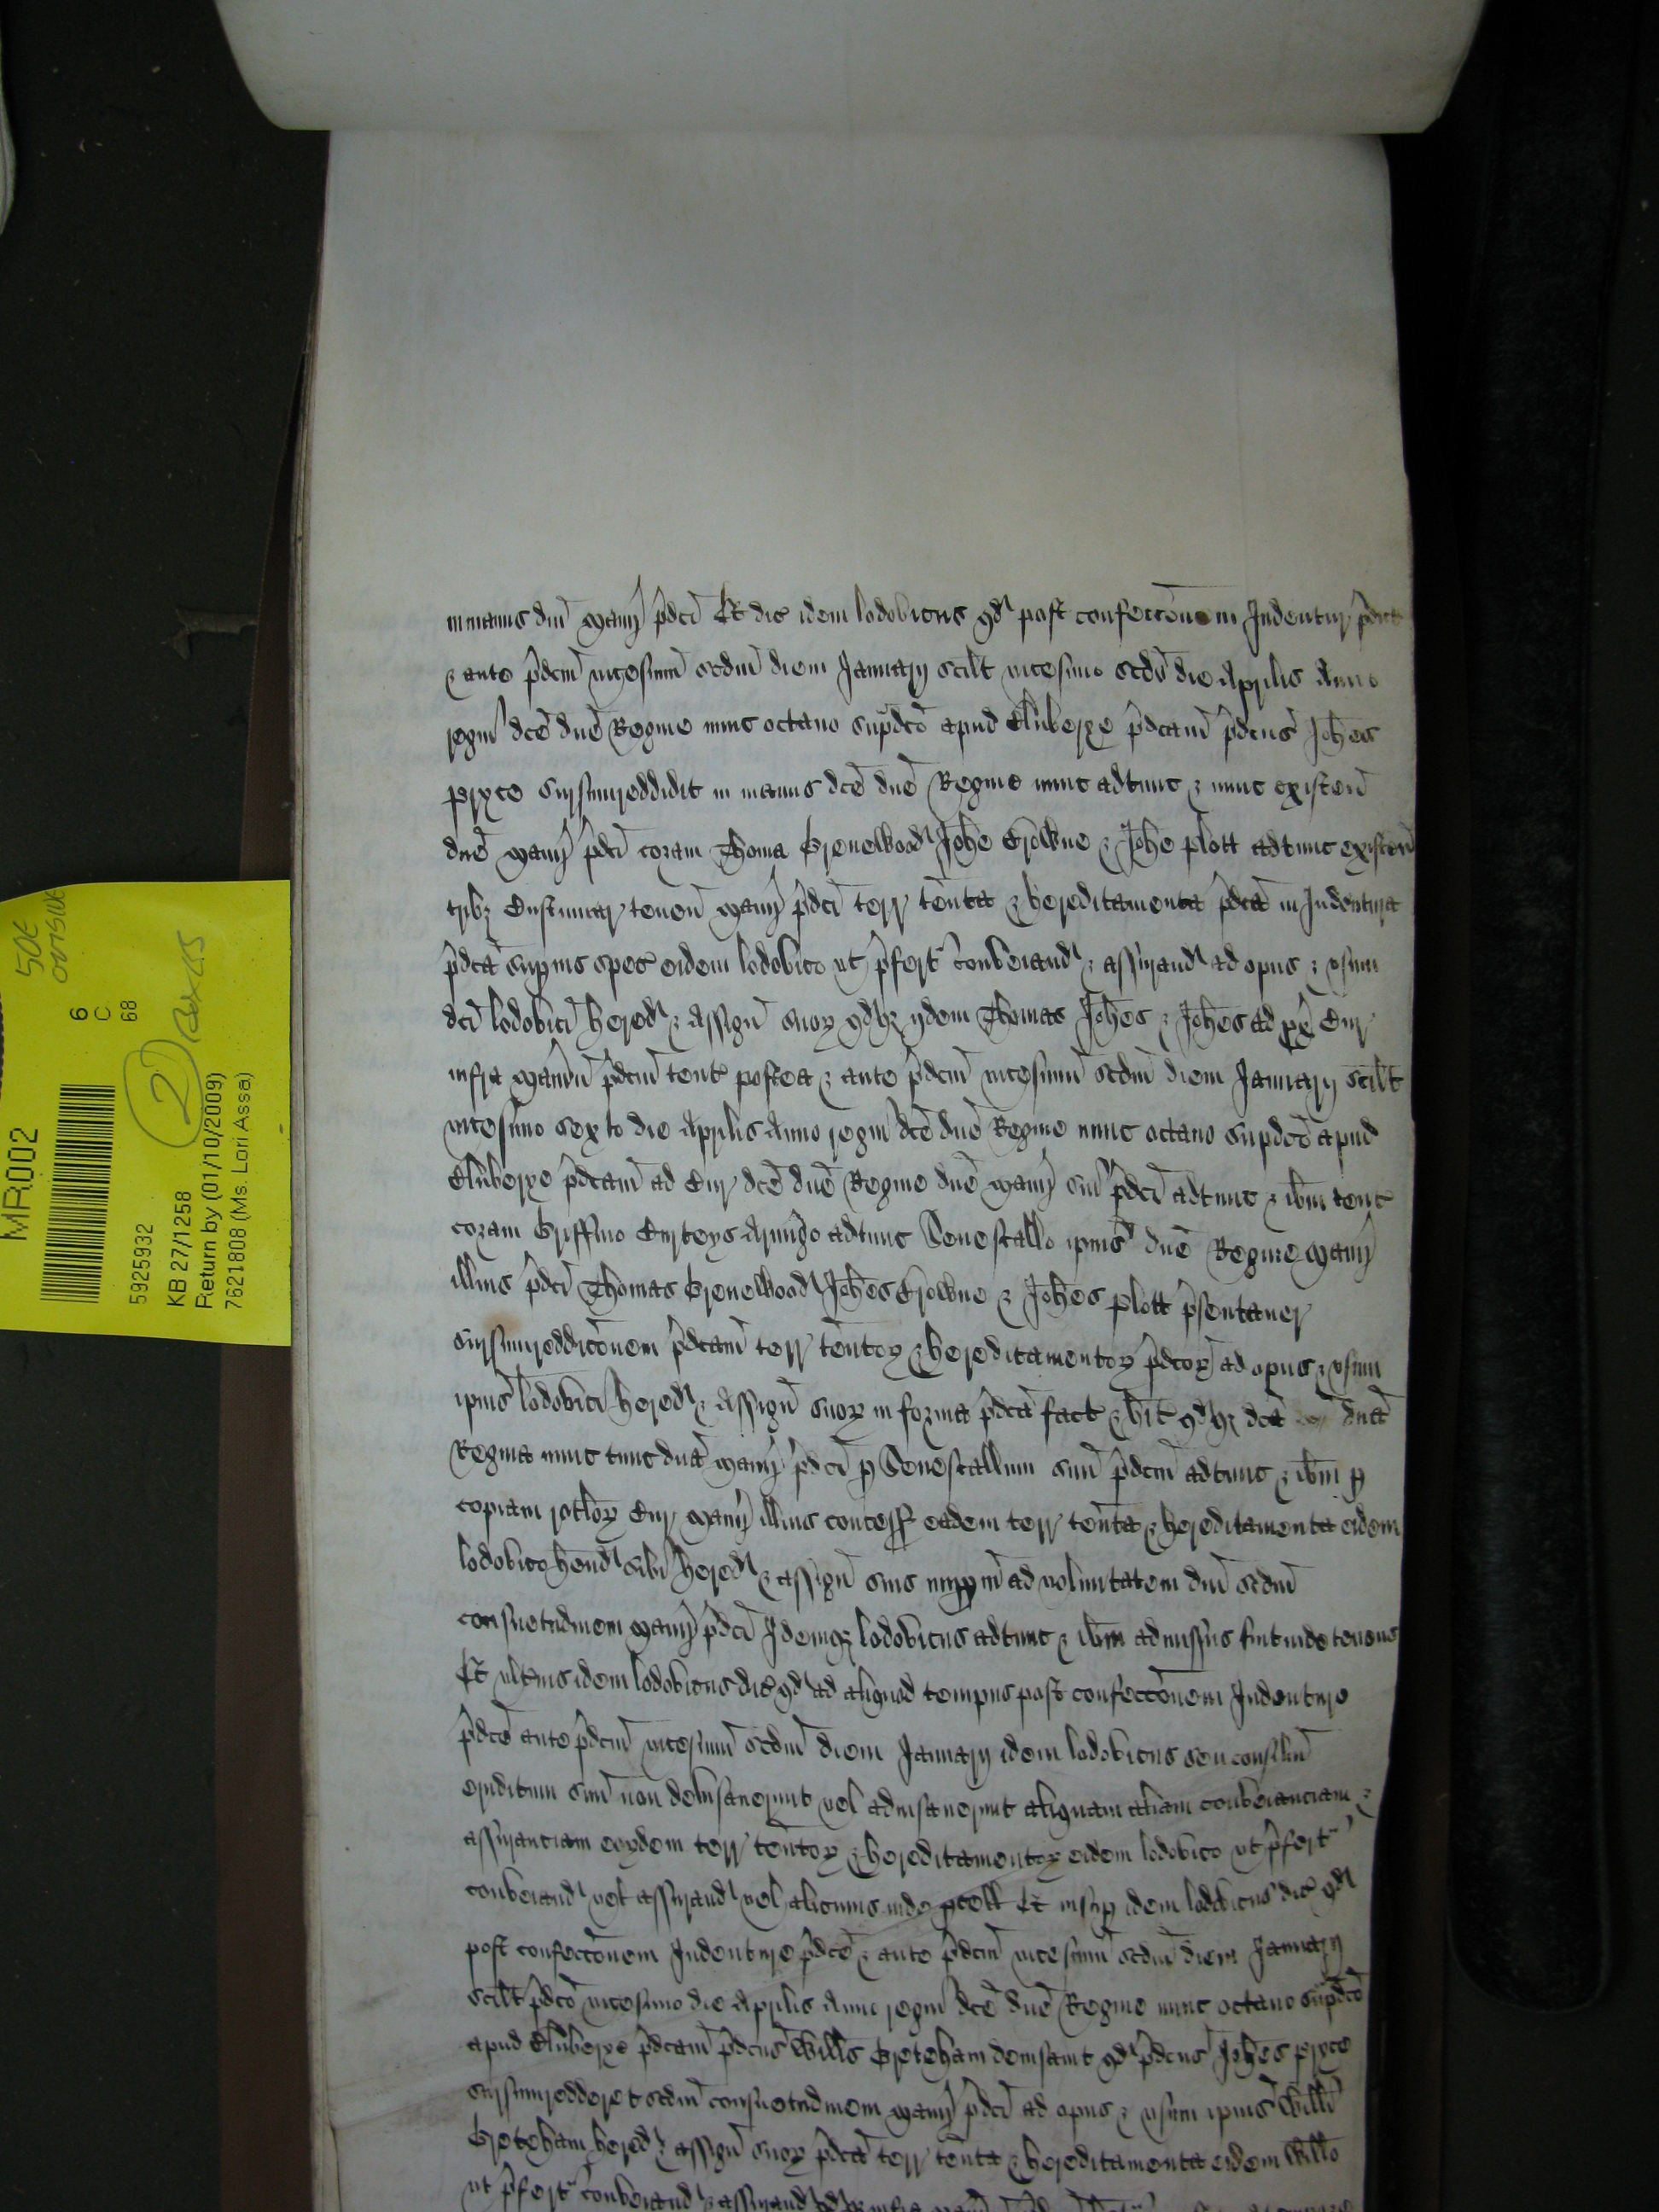 in manus dni Manij p̄dci Et dic idem lodovicus qd post confecc̄onem Indentur p̄dict
& ante p̄dcm̄ vicesimū scdm̄ diem Januarij scilt vicesimo scdo die Aprilis Anno
regni dcē dnē Regine nunc octavo sup̄dcō apud p̄dcam̄ p̄dcus Johēs
pryce sursumreddidit in manus dcē dnē Regine nunc adtunc & nunc existen̄
dnē Manij p̄dci coram Thoma Grenewood Johē Crowne & Johē plott adtunc existen̄
trib; Custumar tenen̄ Manij p̄dci terr ten̄ta & hereditamenta p̄dcā in Indentura
p̄dcā sup̄ius spec̄ eidem lodovico ut p̄fert conveiand & assurand ad opus & usum
dci lodovici hered & Assign̄ suoꝝ qd; ijdem Thomas Johēs & Johēs ad Cur
infra Man̄iū p̄dcm̄ tent postea & ante p̄dcm̄ vicesimū scdm̄ diem Januarij scilt
vicesimo sexto die Aprilis Anno regni dcē dnē Regine nunc octavo sup̄dcō apud
p̄dcam̄ ad Cur dcē dnē Regine dnē Manij sui p̄dci adtunc & ib̄m tent
coram Griffino Curteys Armig̃o adtunc Senescallo ip̄ius dnē Regine Manij
illius p̄dci Thomas Grenewood Johēs Crowne & Johēs plott p̄sentaver
sursumreddic̄onem p̄dcam̄ terr ten̄toꝝ & hereditamentoꝝ p̄dcoꝝ ad opus & usum
ip̄ius lodovici hered & Assign̄ suoꝝ in forma p̄dcā fact & hit qd; dcā dnā
Regina nunc tunc dnā Manij p̄dci ꝑ Senescallum suū p̄dcm̄ adtunc & ib̄m ꝑ
copiam rotloꝝ Cur Manij illius concess eadem terr ten̄ta & hereditamenta eidem
lodovico hend sibi hered & assign̄ suis imꝑpm̄ ad voluntatem dni scdm̄
consuetudinem Manij p̄dci Idemq; lodovicus adtunc & ib̄m admissus fuit inde tenens
Et ulterius idem lodovicus dic qd ad aliquod tempus post confecc̄onem Indenture
p̄dcē ante p̄dcm̄ vicesimū scdm̄ diem Januarij idem lodovicus seu consiliū
eruditum suū non devisaverunt vel advisaverunt aliquam aliam conveianciam &
assuranciam eoꝝdem terr ten̄toꝝ & hereditamentoꝝ eidem lodovico ut p̄fert
conveiand vel assurand vel alicuius inde ꝑcell Et insuꝑ idem lodovicus dic qd
post confecc̄onem Indenture p̄dcē & ante p̄dcm̄ vicesimū scdm̄ diem Januarij
scilt p̄dcō vicesimo die Aprilis Anno regni dcē dnē Regine nunc octavo sup̄dcō
apud p̄dcam̄ p̄dcus Wills Greteham devisavit qd p̄dcus Johēs pryce
sursumredderet scdm̄ consuetudinem Manij p̄dci ad opus & usum ip̄ius Willi
Greteham hered & assign̄ suoꝝ p̄dcā terr ten̄ta & hereditamenta eidem Willo
ut p̄fert conveiand & assurand
MR002
50E
outside
6
C
68
2 Boxes
5925932
KB 27/1258
Return by (01/10/2009)
7621808 (Ms. Lori Assa)